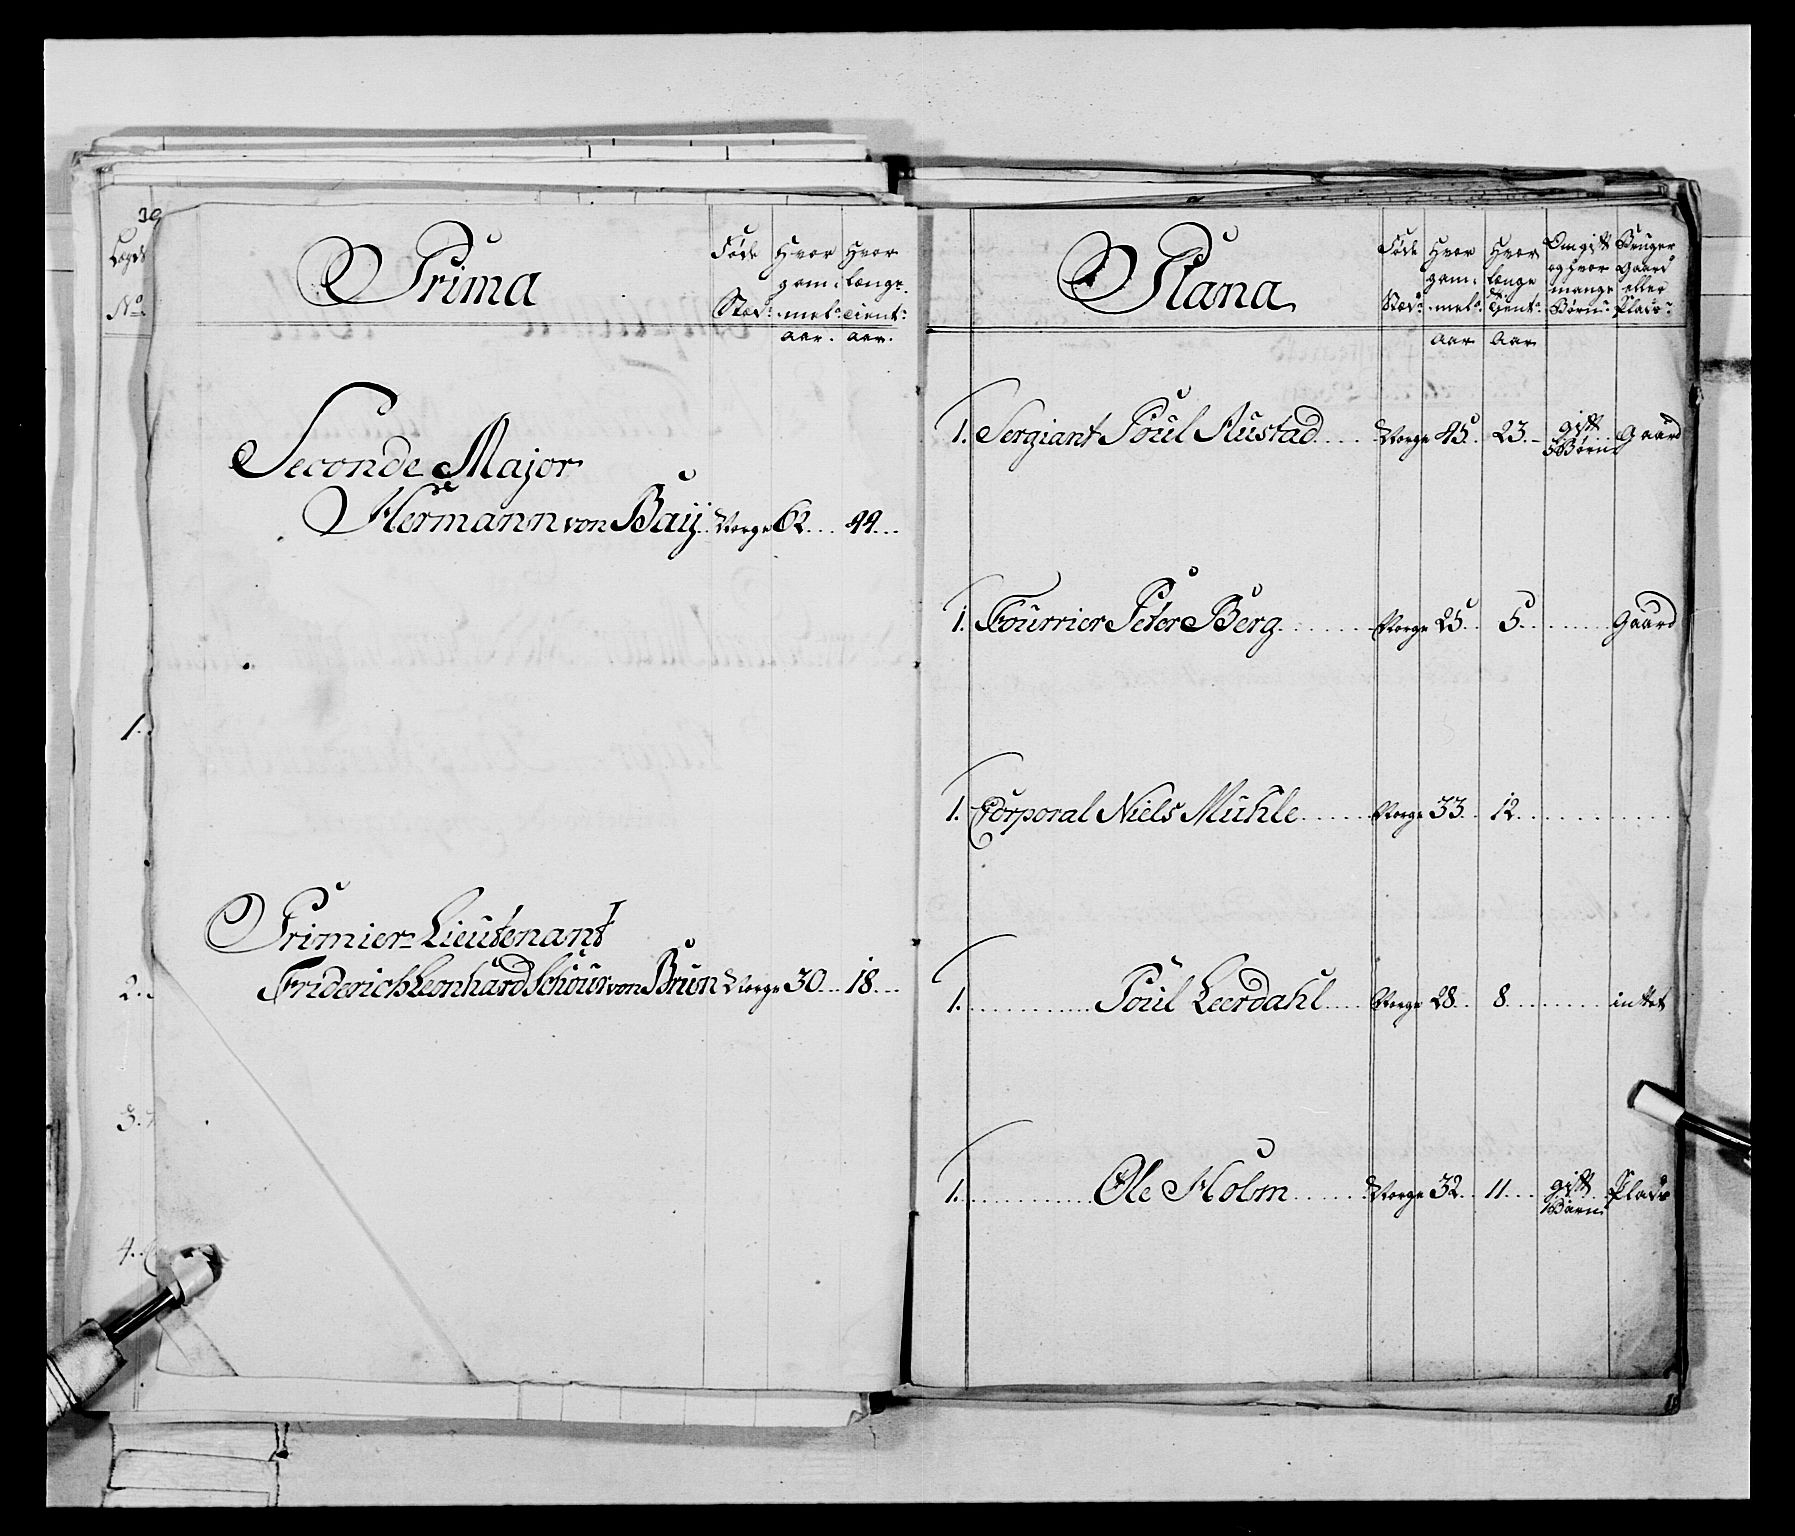 30
Lægds
No
Prima
Føde Stæd:
Hvor gam: mel:
Hvor længe tient:
Aar.
Aar.
Seconde Major
Hermann von Baÿ Norge 62 44
1.
Primier-Lieutenant
Friderich Leonhard Schour von Brun Norge 30 18
2.
3.
4.
Plana
Føde Stæd:
Hvor gam: mel:
Hvor længe tient:
Om gift og hvor mange Børn:
Bruger Gaard eller Plads:
Aar
Aar
1. Sergiant Poul Austad Norge 45 23 gift Børn Gaard
1. Fourrier Peter Berg Norge 25 5 Gaard
1. Corporal Niels Muhle Norge 33 12
1. Poul Leerdahl Norge 28 8 intet
1. Ole Holm Norge 32 11 gift 1 Barn Plads